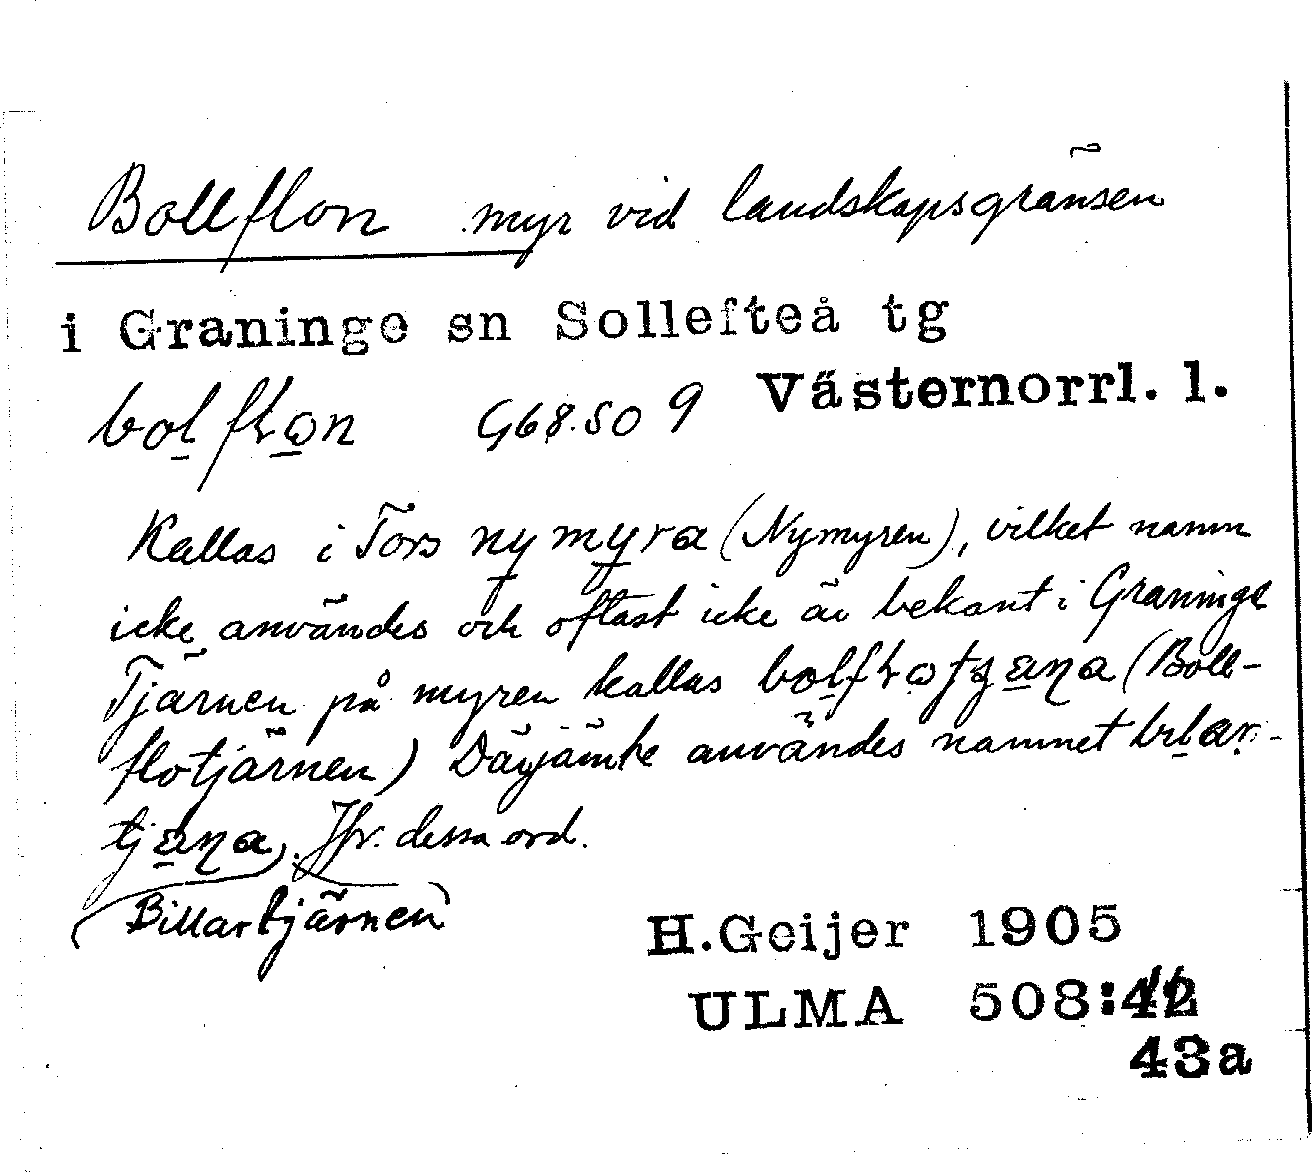 Bollflon myr vid landskapsgränsen
i Graninge sn Sollefteå tg
Västernorrl. l.
bolflon G68.SO 9
Kallas i Tors nymyra (Nymyren), vilket namn
icke användes och oftast icke är bekant i Graninge
Tjärnen på myren kallas bolflotjæna (Boll-
flotjärnen) Därjämte användes namnet bilar-
tjæna. Jfr. dessa ord.
(Billartjärnen)
H.Geijer 1905
ULMA 508:
43a